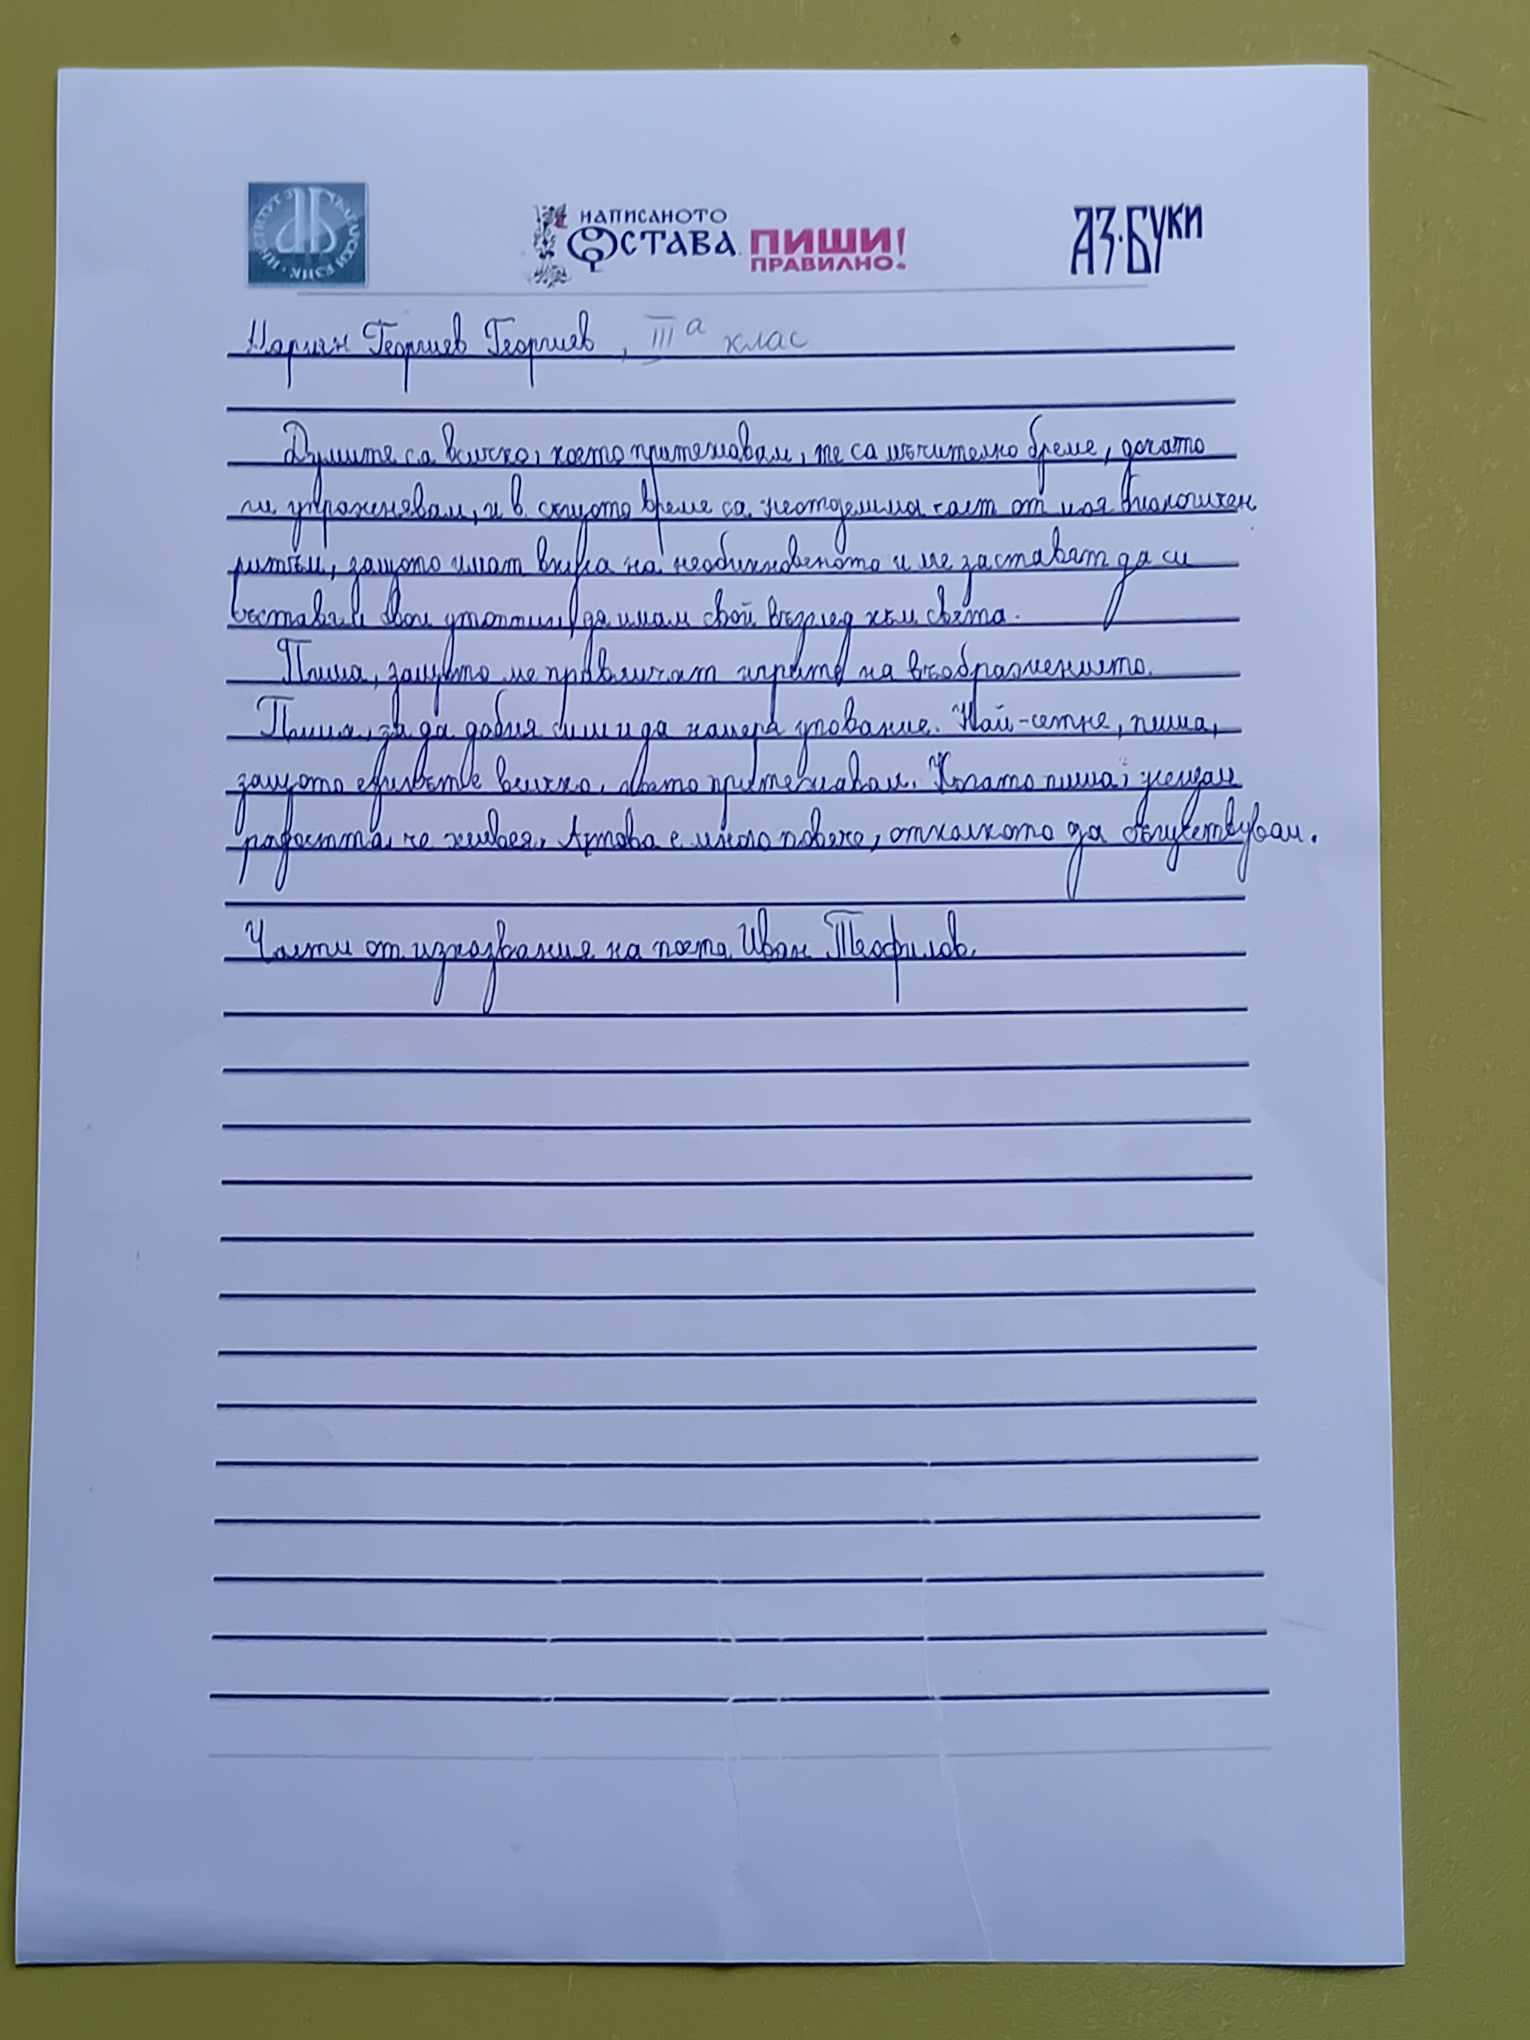 ИНСТИТУТ ЗА БЪЛГАРСКИ ЕЗИК
НАПИСАНОТО
ОСТАВА ПИШИ!
ПРАВИЛНО.
АЗ·БУКИ
Мариян Георгиев Георгиев, III а клас
Думите са всичко, което притежавам, те са мъчително бреме, докато
ги упражнявам, и в същото време са неотделима част от моя биологичен
ритъм, защото имат вкуса на необикновеното и ме заставят да си
съставям свои утопии, да имам свой възглед към света.
Пиша, защото ме привличат игрите на въображението.
Пиша, за да добия сили и да намеря упование. Най-сетне, пиша,
защото езикът е всичко, което притежавам. Когато пиша, усещам
радостта, че живея. А това е много повече, отколкото да съществувам.
Части от изказвания на поета Иван Теофилов.